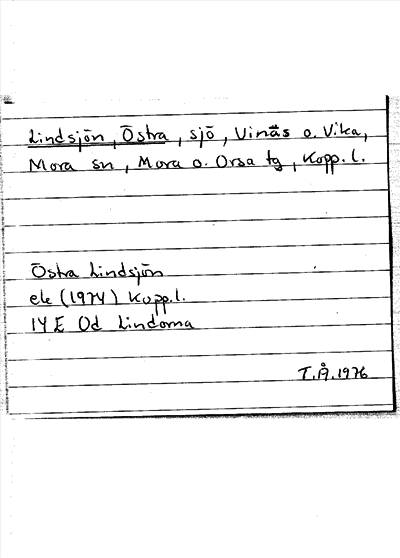 Lindsjön, Östra, sjö, Vinäs o. Vika,
Mora sn, Mora o. Orsa tg, Kopp. l.
Östra Lindsjön
ek (1974) Kopp. l.
14 E 0d Lindorna
T.Å. 1976